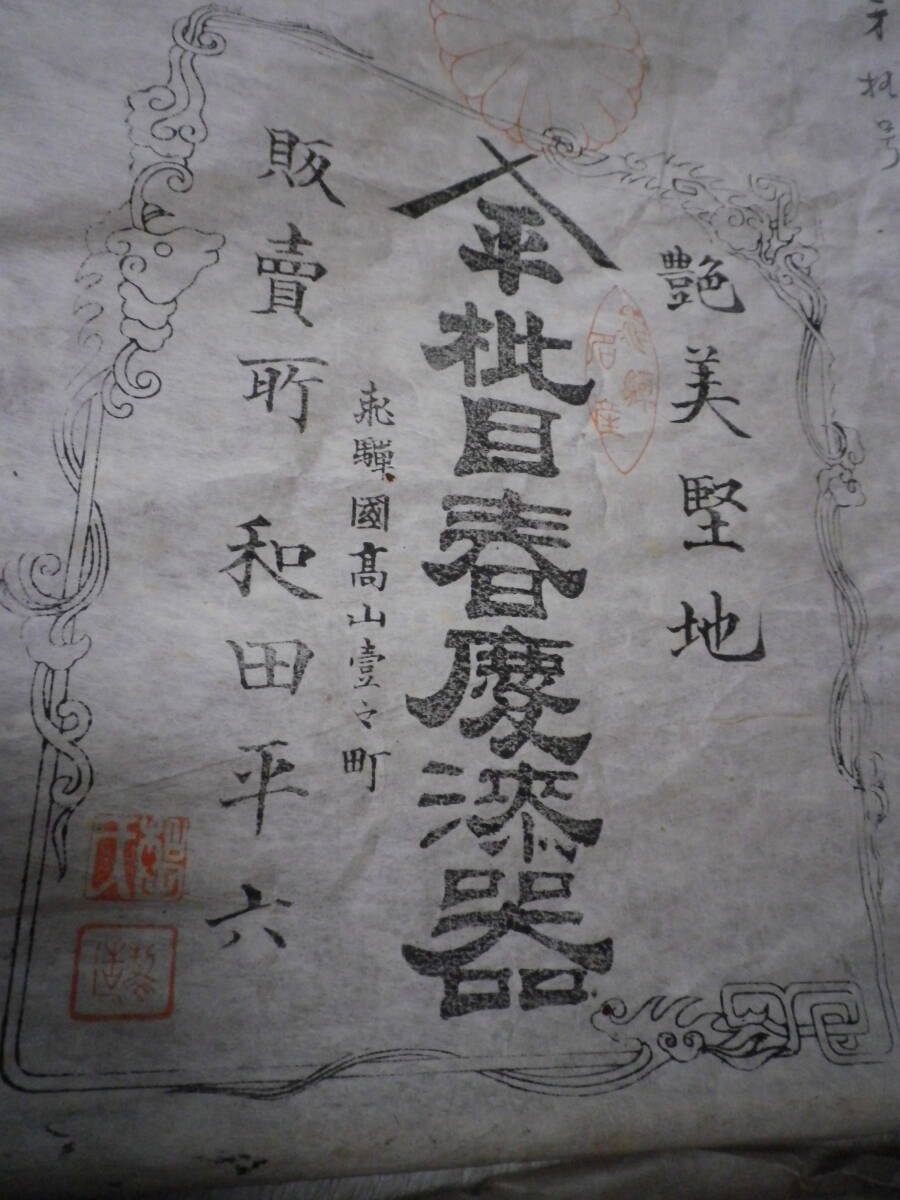 艶美堅地
平枇目春慶漆器
飛騨國髙山壹々町
販賣所 和田平六